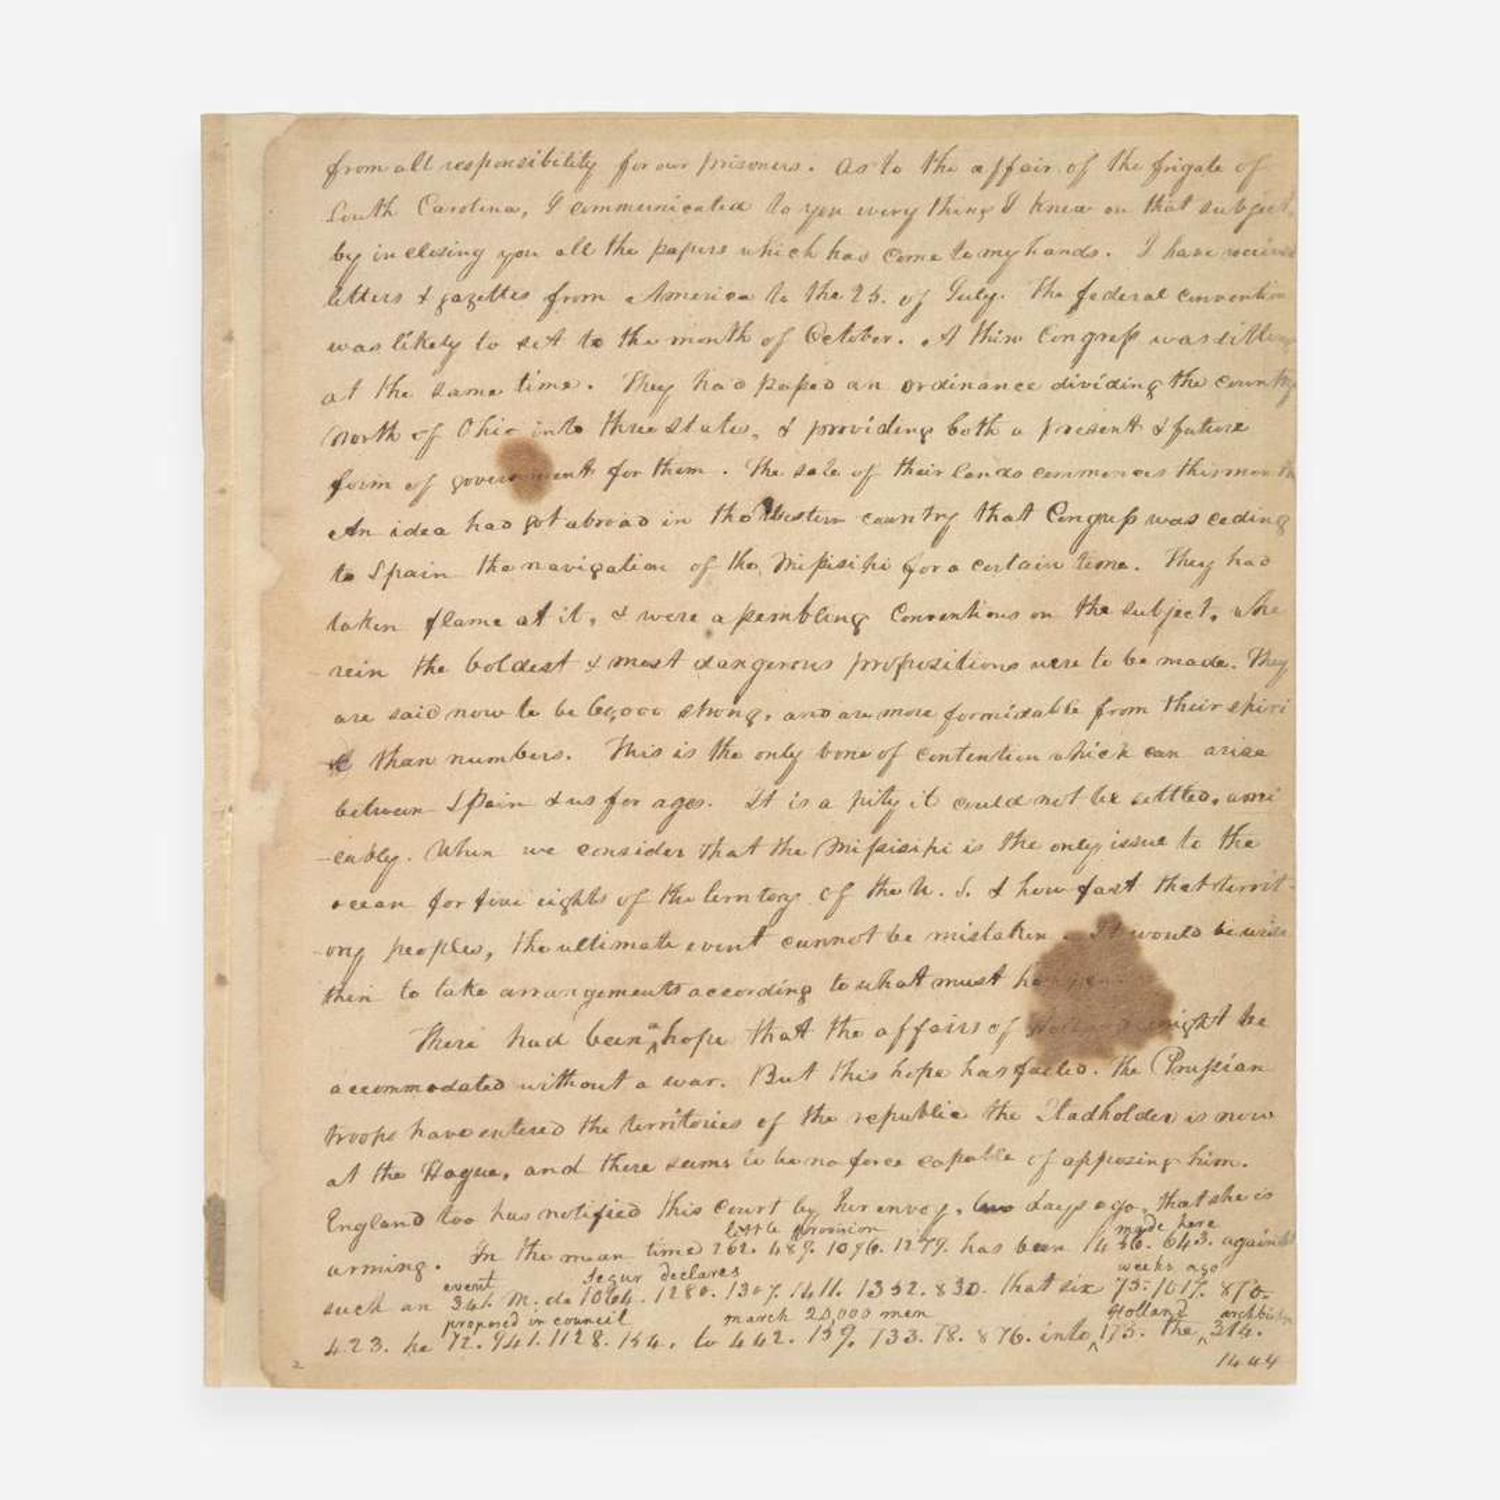 from all responsibility for our prisoners. As to the affair of the frigate of
South Carolina, I communicated to you every thing I knew on that subject,
by inclosing you all the papers which had come to my hands. I have received
letters & gazettes from America to the 25. of July. The federal convention
was likely to set to the month of October. A thin Congress was sitting
at the same time. They had passed an ordinance dividing the country
North of Ohio into three states, & providing both a present & future
form of government for them. The sale of their lands commences this month
An idea had got abroad in the Western country that Congress was ceding
to Spain the navigation of the Missisipi for a certain time. They had
taken flame at it, & were assembling conventions on the subject, whe
rein the boldest & most dangerous propositions were to be made. They
are said now to be 60,000 strong, and are more formidable from their spiri
t than numbers. This is the only bone of contention which can arise
between Spain & us for ages. It is a pity it could not be settled, ami
-cably. When we consider that the Missisipi is the only issue to the
ocean for five eights of the territory of the U. S. & how fast that territ-
-ory peoples, the ultimate event cannot be mistaken. It would be wise
then to take arrangements according to what must happen
There had been a hope that the affairs of Holland might be
accommodated without a war. But this hope has failed. The Prussian
troops have entered the territories of the republic the Stadholder is now
at the Hague, and there seems to be no force capable of opposing him.
England too has notified this court by her envoy, two days ago, that she is
little provision made here
arming. In the mean time 262. 487. 1096. 1279. has been 1456. 643. against
event Segur declares weeks ago
such an 341. M. de 1064. 1280. 1307. 1411. 1352. 830. that six 75. 1017. 870.
proposed in council march 20,000 men Holland archbishop
423. he 72. 941. 1128. 154. to 442. 159. 733. 78. 876. into 175. the 314.
2
1444